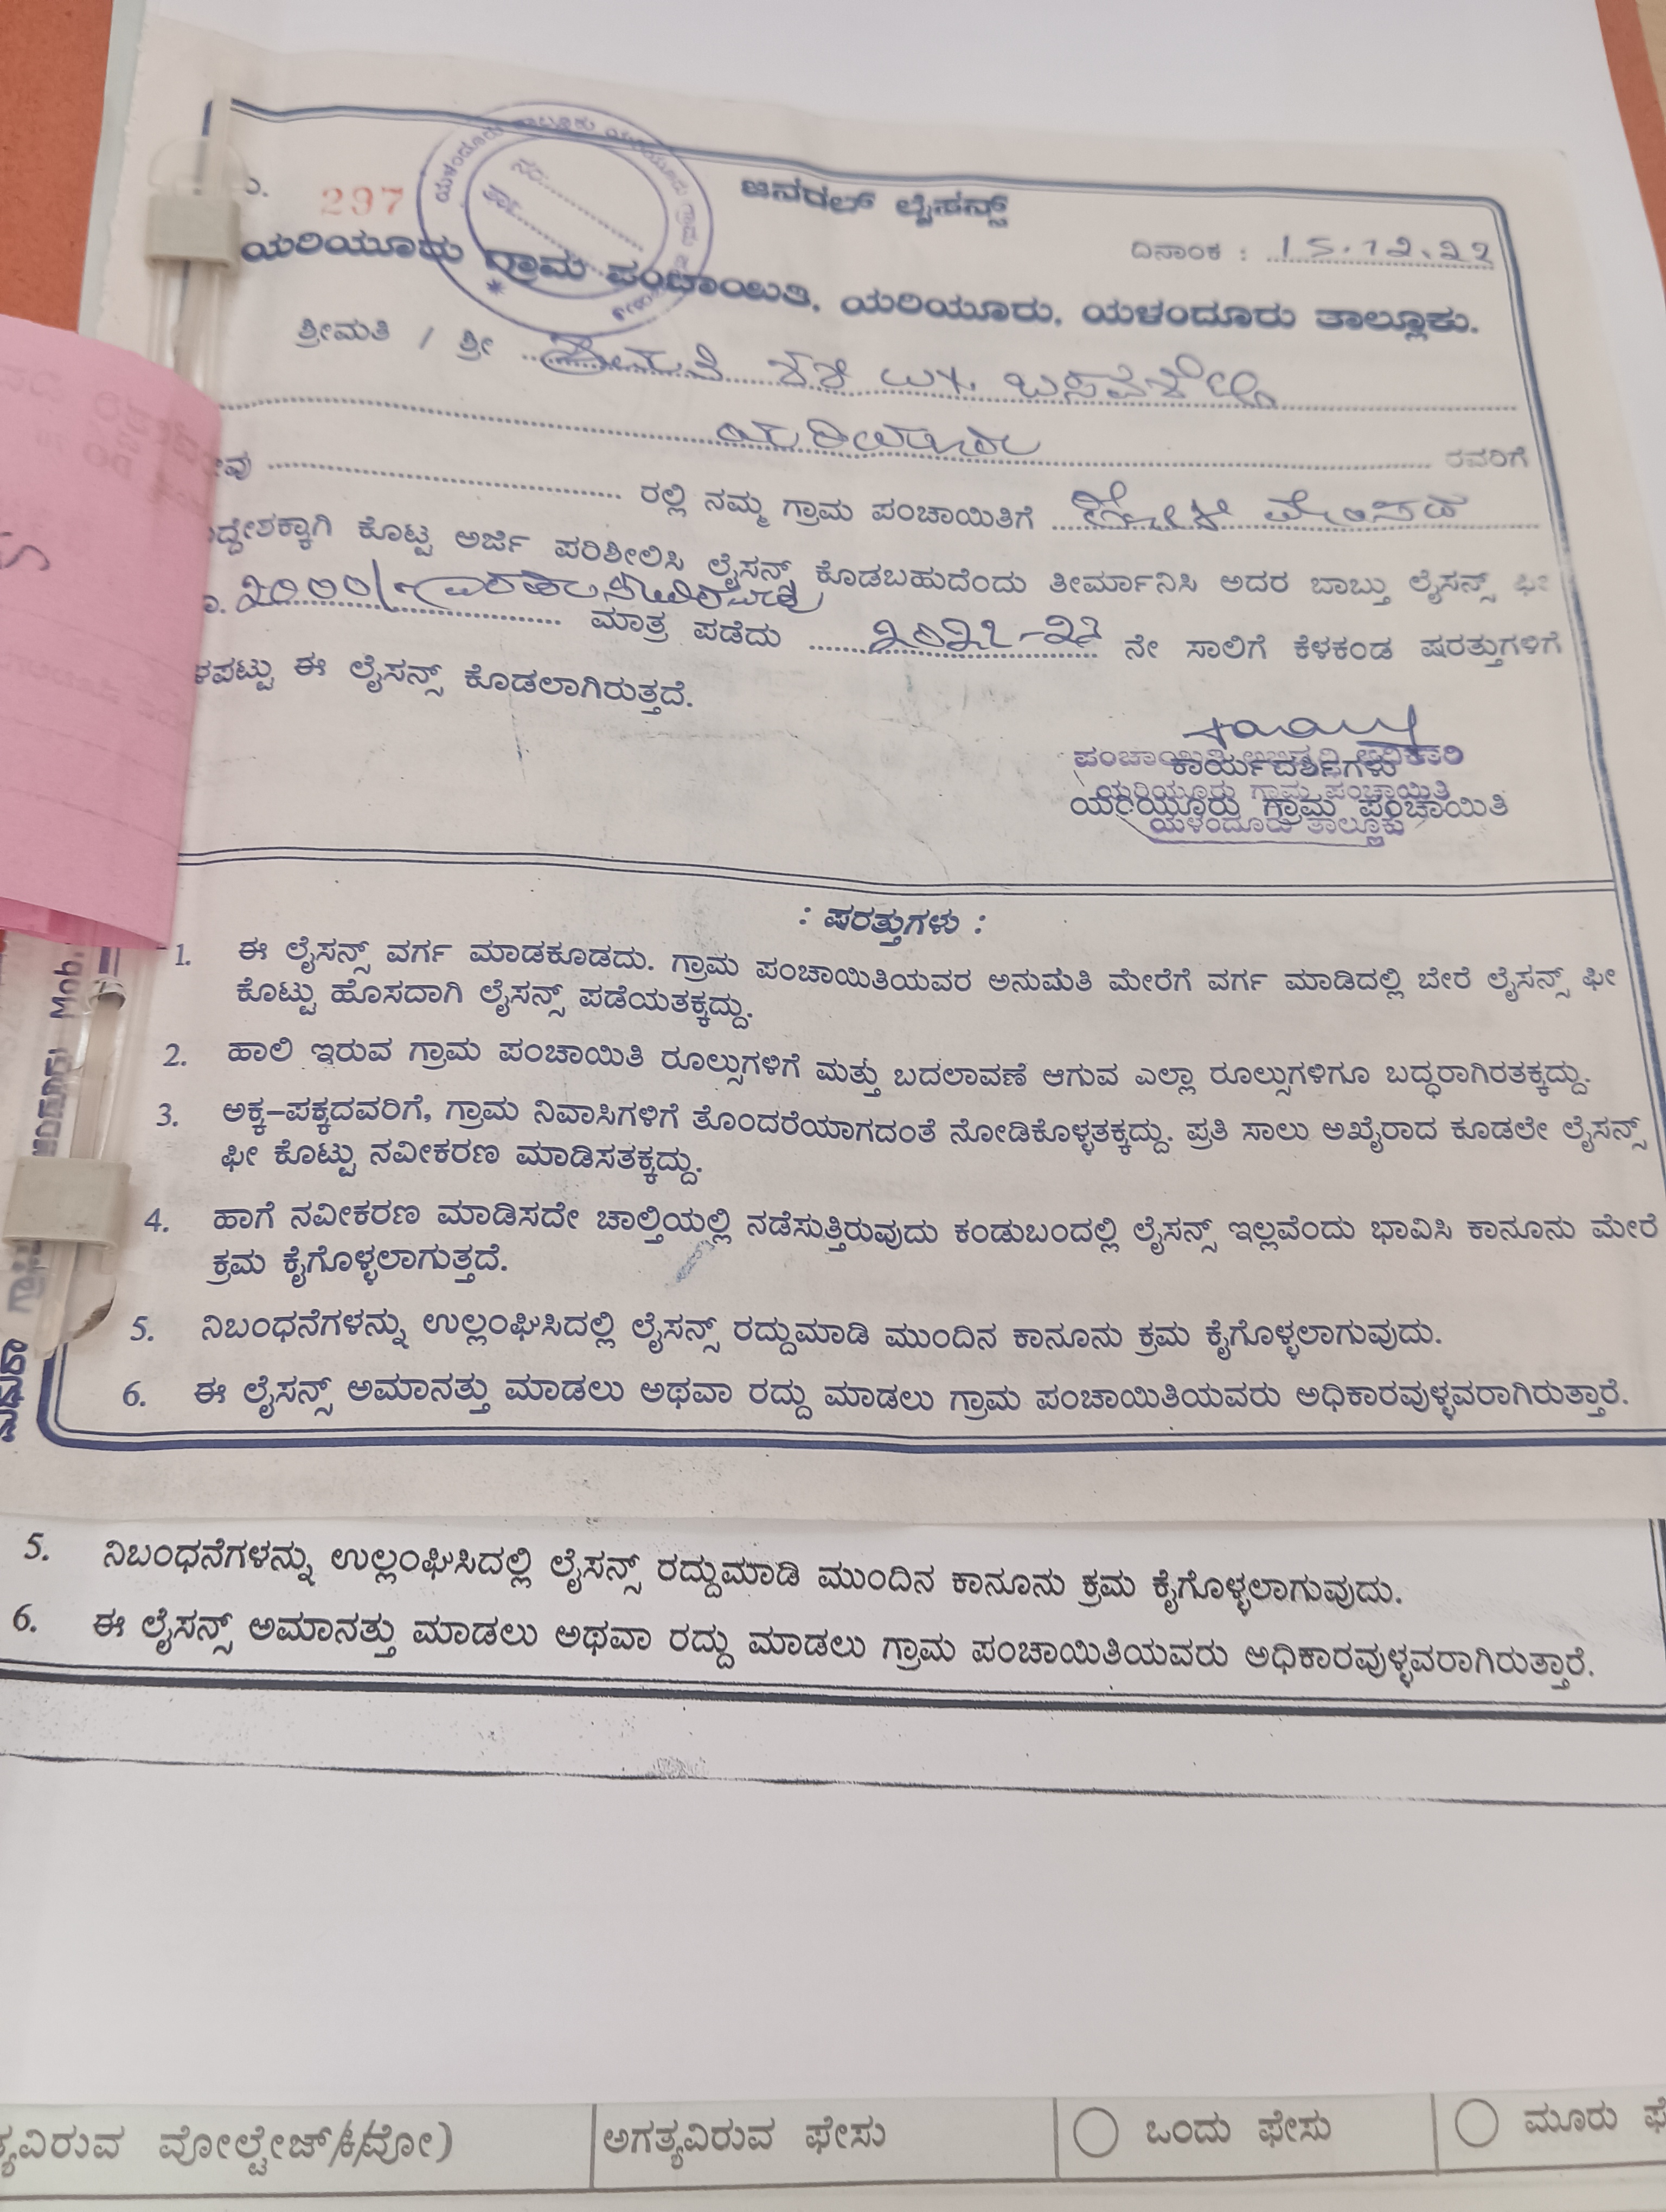 297
ಜನರಲ್ ಲೈಸನ್ಸ್
ದಿನಾಂಕ : 15.12.22
ಯರಿಯೂರು ಗ್ರಾಮ ಪಂಚಾಯಿತಿ, ಯರಿಯೂರು, ಯಳಂದೂರು ತಾಲ್ಲೂಕು.
ಶ್ರೀಮತಿ / ಶ್ರೀ ಶ್ರೀಮತಿ
ಯರಿಯೂರು ರವರಿಗೆ
ರಲ್ಲಿ ನಮ್ಮ ಗ್ರಾಮ ಪಂಚಾಯಿತಿಗೆ
ದ್ದೇಶಕ್ಕಾಗಿ ಕೊಟ್ಟ ಅರ್ಜಿ ಪರಿಶೀಲಿಸಿ ಲೈಸನ್ಸ್ ಕೊಡಬಹುದೆಂದು ತೀರ್ಮಾನಿಸಿ ಅದರ ಬಾಬ್ತು ಲೈಸನ್ಸ್ ಫೀ
೨೦೦೦/- ಮಾತ್ರ ಪಡೆದು ೨೦೨೨-೨೩ ನೇ ಸಾಲಿಗೆ ಕೆಳಕಂಡ ಷರತ್ತುಗಳಿಗೆ
ಳಪಟ್ಟು ಈ ಲೈಸನ್ಸ್ ಕೊಡಲಾಗಿರುತ್ತದೆ.
ಪಂಚಾಯಿತಿ ಅಭಿವೃದ್ಧಿ ಅಧಿಕಾರಿ
ಕಾರ್ಯದರ್ಶಿಗಳು
ಯರಿಯೂರು ಗ್ರಾಮ ಪಂಚಾಯಿತಿ
ಯರಿಯೂರು ಗ್ರಾಮ ಪಂಚಾಯಿತಿ
ಯಳಂದೂರು ತಾಲ್ಲೂಕು
: ಷರತ್ತುಗಳು :
1. ಈ ಲೈಸನ್ಸ್ ವರ್ಗ ಮಾಡಕೂಡದು. ಗ್ರಾಮ ಪಂಚಾಯಿತಿಯವರ ಅನುಮತಿ ಮೇರೆಗೆ ವರ್ಗ ಮಾಡಿದಲ್ಲಿ ಬೇರೆ ಲೈಸನ್ಸ್ ಫೀ
ಕೊಟ್ಟು ಹೊಸದಾಗಿ ಲೈಸನ್ಸ್ ಪಡೆಯತಕ್ಕದ್ದು.
2. ಹಾಲಿ ಇರುವ ಗ್ರಾಮ ಪಂಚಾಯಿತಿ ರೂಲ್ಸುಗಳಿಗೆ ಮತ್ತು ಬದಲಾವಣೆ ಆಗುವ ಎಲ್ಲಾ ರೂಲ್ಸುಗಳಿಗೂ ಬದ್ಧರಾಗಿರತಕ್ಕದ್ದು.
3. ಅಕ್ಕ-ಪಕ್ಕದವರಿಗೆ, ಗ್ರಾಮ ನಿವಾಸಿಗಳಿಗೆ ತೊಂದರೆಯಾಗದಂತೆ ನೋಡಿಕೊಳ್ಳತಕ್ಕದ್ದು. ಪ್ರತಿ ಸಾಲು ಅಖೈರಾದ ಕೂಡಲೇ ಲೈಸನ್ಸ್
ಫೀ ಕೊಟ್ಟು ನವೀಕರಣ ಮಾಡಿಸತಕ್ಕದ್ದು.
4. ಹಾಗೆ ನವೀಕರಣ ಮಾಡಿಸದೇ ಚಾಲ್ತಿಯಲ್ಲಿ ನಡೆಸುತ್ತಿರುವುದು ಕಂಡುಬಂದಲ್ಲಿ ಲೈಸನ್ಸ್ ಇಲ್ಲವೆಂದು ಭಾವಿಸಿ ಕಾನೂನು ಮೇರೆ
ಕ್ರಮ ಕೈಗೊಳ್ಳಲಾಗುತ್ತದೆ.
5. ನಿಬಂಧನೆಗಳನ್ನು ಉಲ್ಲಂಘಿಸಿದಲ್ಲಿ ಲೈಸನ್ಸ್ ರದ್ದುಮಾಡಿ ಮುಂದಿನ ಕಾನೂನು ಕ್ರಮ ಕೈಗೊಳ್ಳಲಾಗುವುದು.
6. ಈ ಲೈಸನ್ಸ್ ಅಮಾನತ್ತು ಮಾಡಲು ಅಥವಾ ರದ್ದು ಮಾಡಲು ಗ್ರಾಮ ಪಂಚಾಯಿತಿಯವರು ಅಧಿಕಾರವುಳ್ಳವರಾಗಿರುತ್ತಾರೆ.
Mob.
5. ನಿಬಂಧನೆಗಳನ್ನು ಉಲ್ಲಂಘಿಸಿದಲ್ಲಿ ಲೈಸನ್ಸ್ ರದ್ದುಮಾಡಿ ಮುಂದಿನ ಕಾನೂನು ಕ್ರಮ ಕೈಗೊಳ್ಳಲಾಗುವುದು.
6. ಈ ಲೈಸನ್ಸ್ ಅಮಾನತ್ತು ಮಾಡಲು ಅಥವಾ ರದ್ದು ಮಾಡಲು ಗ್ರಾಮ ಪಂಚಾಯಿತಿಯವರು ಅಧಿಕಾರವುಳ್ಳವರಾಗಿರುತ್ತಾರೆ.
ತ್ಯವಿರುವ ವೋಲ್ಟೇಜ್ ಅಗತ್ಯವಿರುವ ಫೇಸು ಒಂದು ಫೇಸು ಮೂರು ಫೇ